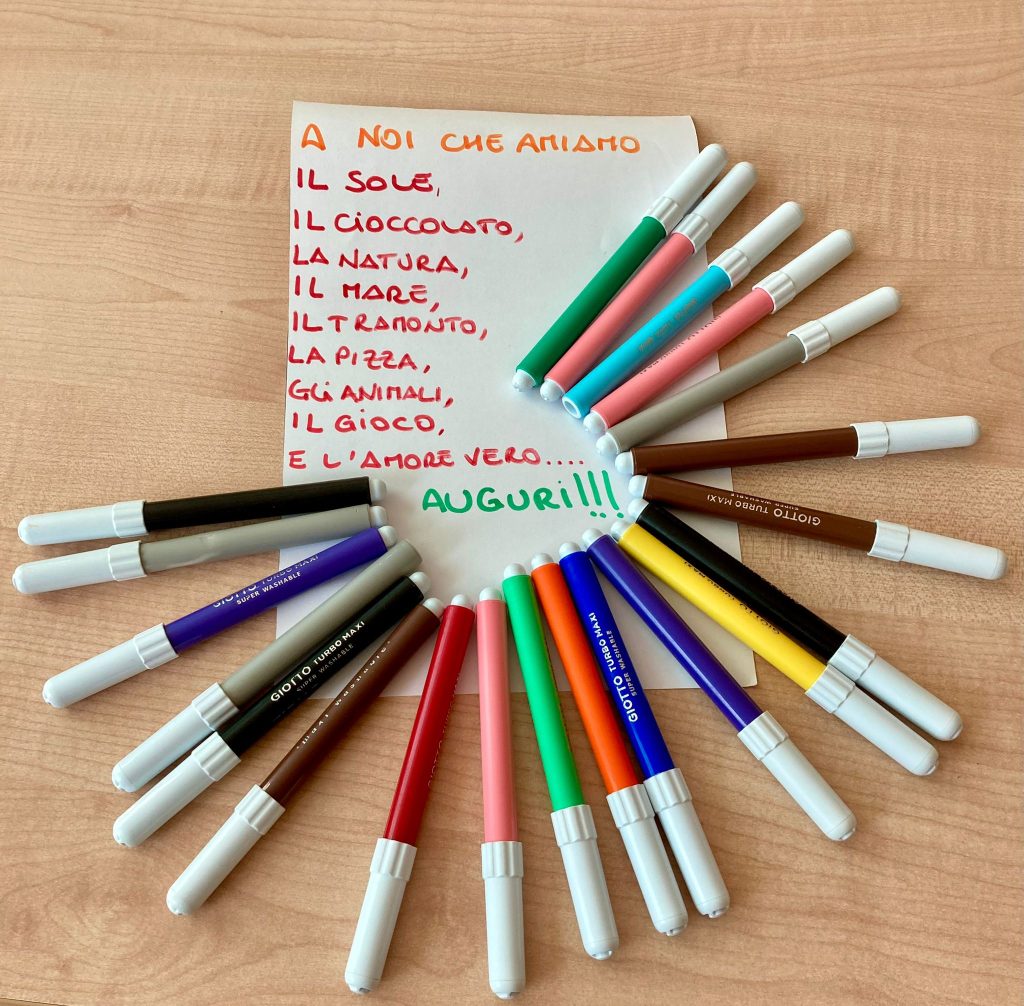 A NOI CHE AMIAMO
IL SOLE,
IL CIOCCOLATO,
LA NATURA,
IL MARE,
IL TRAMONTO,
LA PIZZA,
GLI ANIMALI,
IL GIOCO,
E L'AMORE VERO....
AUGURI!!!
GIOTTO TURBO MAXI
SUPER WASHABLE
GIOTTO TURBO MAXI
SUPER WASHABLE
GIOTTO TURBO MAXI
SUPER WASHABLE
GIOTTO TURBO MAXI
SUPER WASHABLE